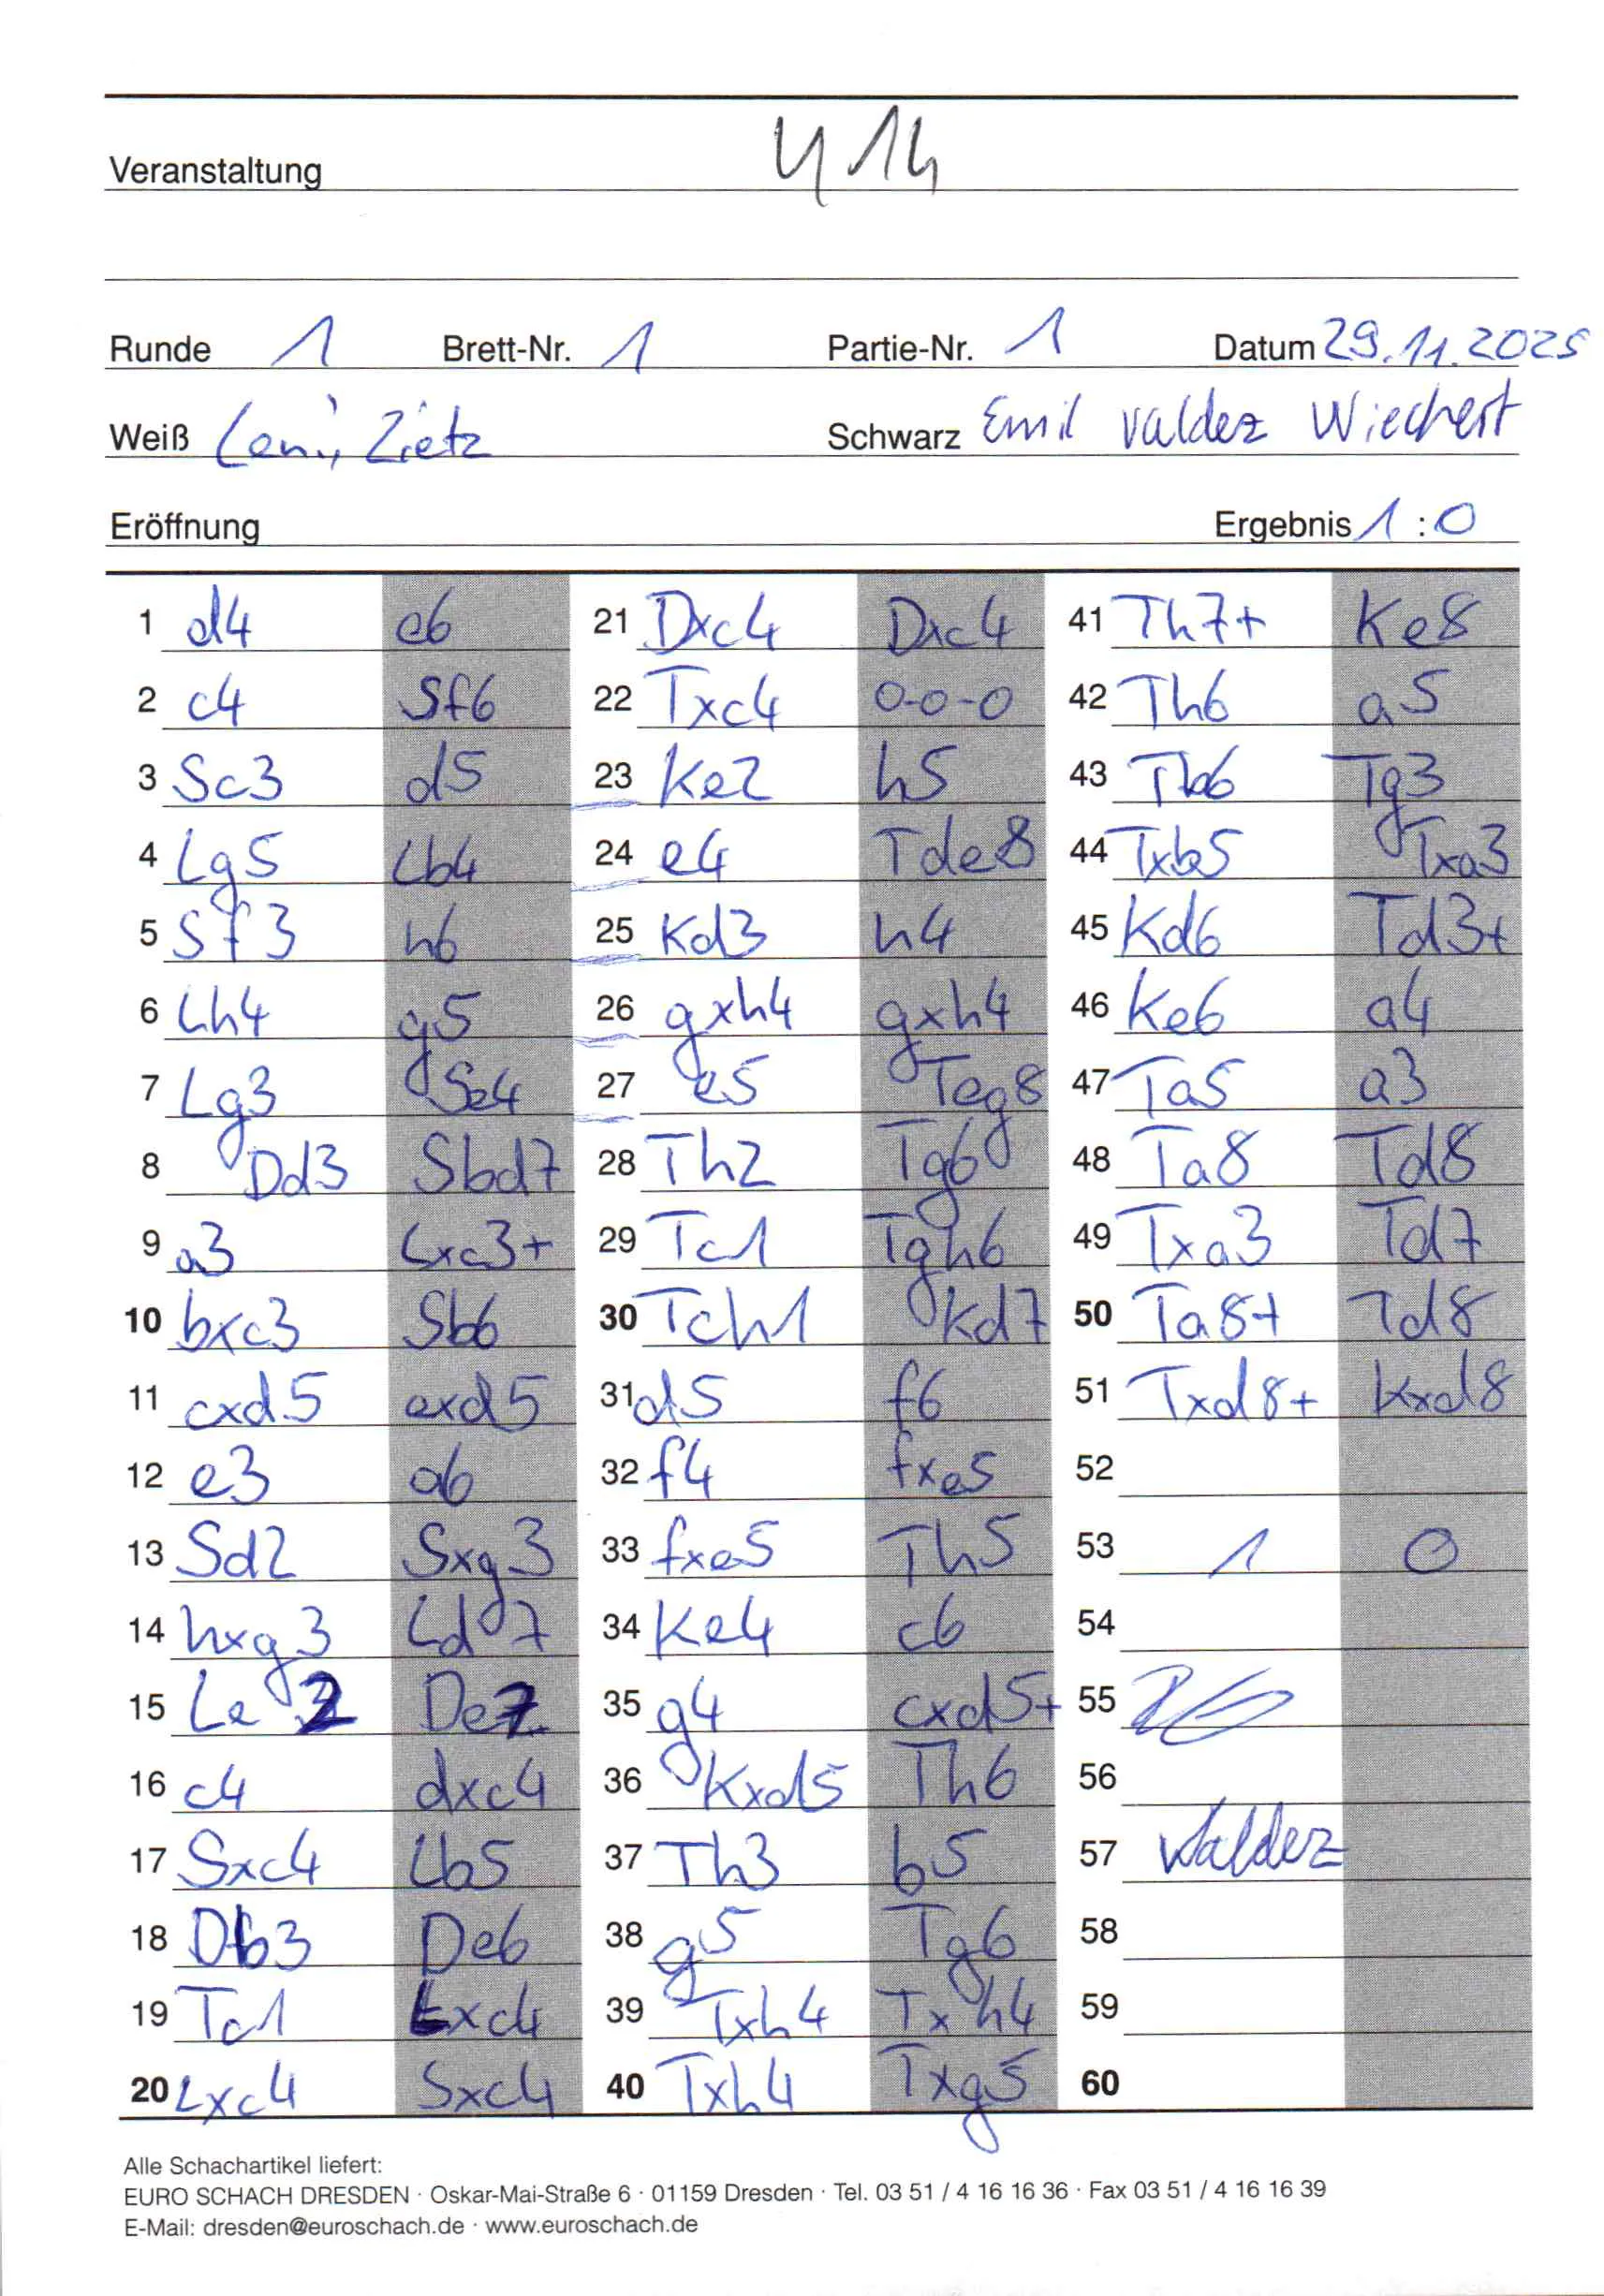 Veranstaltung U14
Runde 1 Brett-Nr. 1 Partie-Nr. 1 Datum 29.11.2025
Weiß Leni, Zietz Schwarz Emil Valdez Wiechert
Eröffnung Ergebnis 1:0
1 d4 e6 21 Dxc4 Dxc4 41 Th7+ Ke8
2 c4 Sf6 22 Txc4 0-0-0 42 Th6 a5
3 Sc3 d5 23 Ke2 h5 43 Tb6 Tg3
4 Lg5 Lb4 24 e4 Tde8 44 Txb5 Txa3
5 Sf3 h6 25 Kd3 h4 45 Kd6 Td3+
6 Lh4 g5 26 gxh4 gxh4 46 Ke6 a4
7 Lg3 Se4 27 e5 Teg8 47 Ta5 a3
8 Dd3 Sbd7 28 Th2 Tg6 48 Ta8 Td8
9 a3 Lxc3+ 29 Tc1 Tgh6 49 Txa3 Td7
10 bxc3 Sb6 30 Tch1 Kd7 50 Ta8+ Td8
11 cxd5 exd5 31 d5 f6 51 Txd8+ Kxd8
12 e3 a6 32 f4 fxe5 52
13 Sd2 Sxg3 33 fxe5 Th5 53 1 0
14 hxg3 Ld7 34 Ke4 c6 54
15 Le2 De7 35 g4 cxd5+ 55
16 c4 dxc4 36 Kxd5 Th6 56
17 Sxc4 Lb5 37 Th3 b5 57 Valdez
18 Db3 De6 38 g5 Tg6 58
19 Tc1 Lxc4 39 Txh4 Txh4 59
20 Lxc4 Sxc4 40 Txh4 Txg5 60
Alle Schachartikel liefert:
EURO SCHACH DRESDEN · Oskar-Mai-Straße 6 · 01159 Dresden · Tel. 03 51 / 4 16 16 36 · Fax 03 51 / 4 16 16 39
E-Mail: dresden@euroschach.de · www.euroschach.de